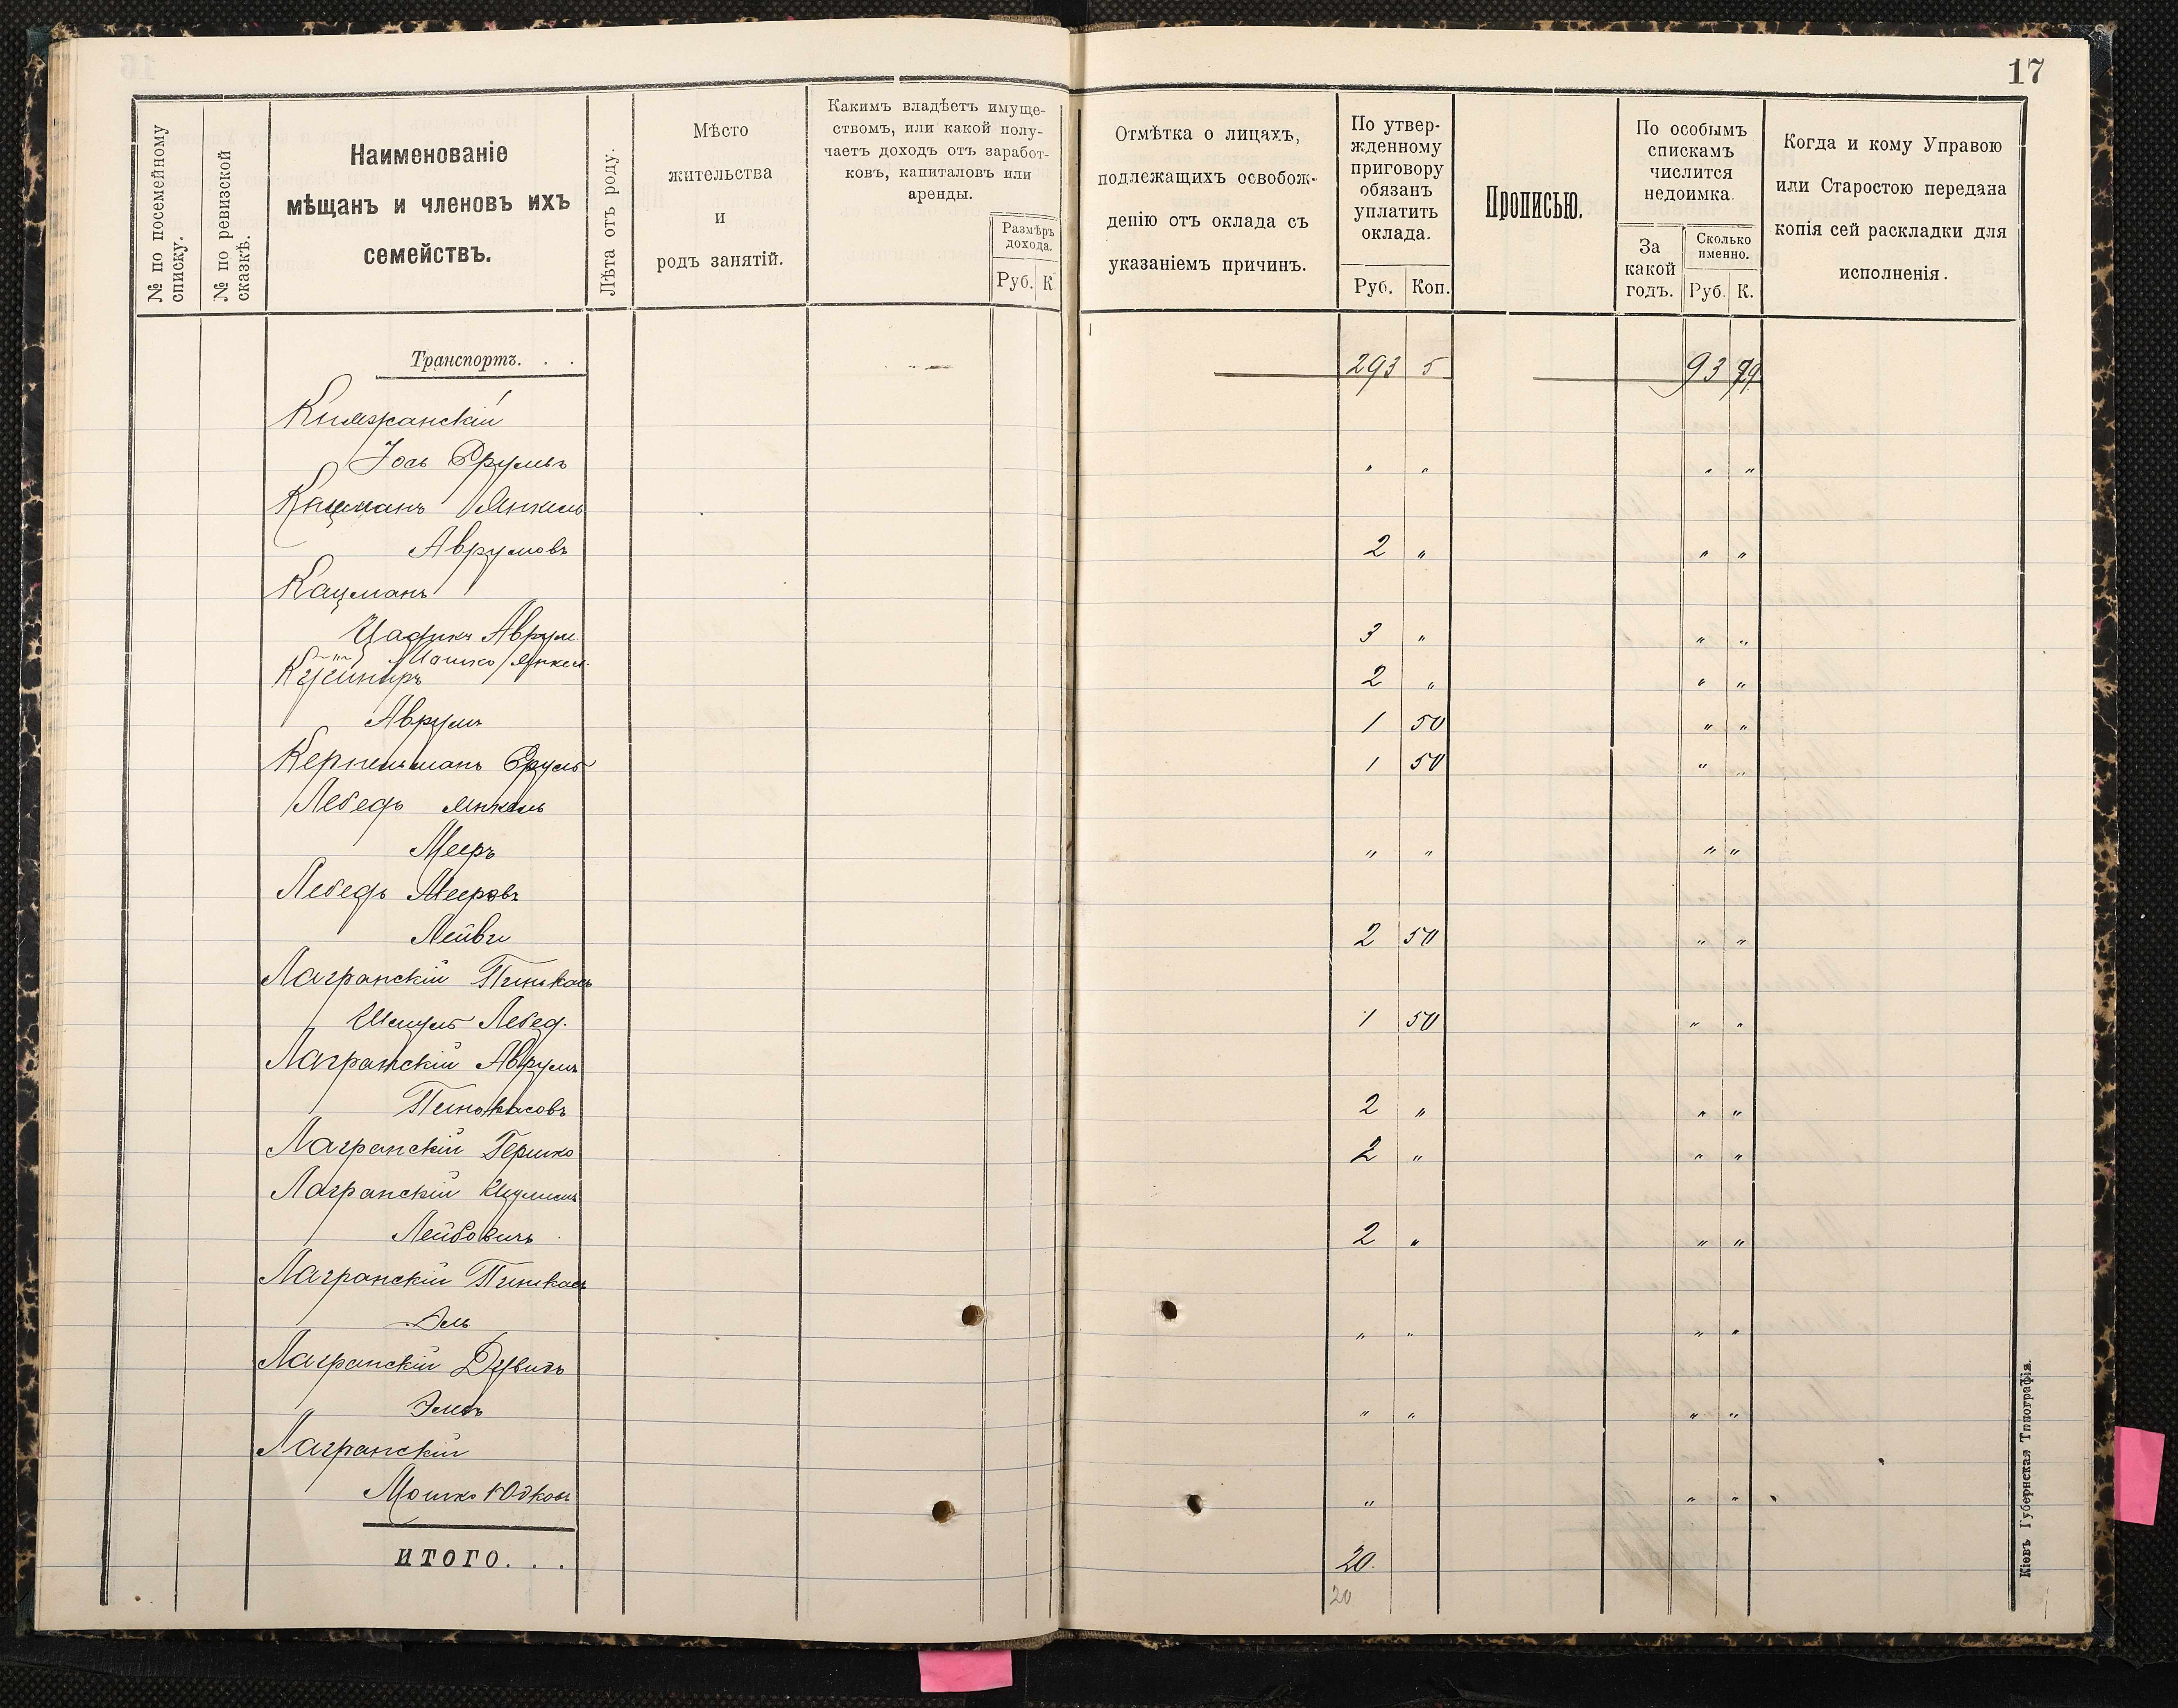 17
№ по посемейному списку.
№ по ревизской сказкѣ.
Наименованіе
мѣщанъ и членовъ ихъ
семействъ.
Лѣта отъ роду.
Мѣсто
жительства
и
родъ занятій.
Какимъ владѣетъ имуще-
ствомъ, или какой полу-
чаетъ доходъ отъ заработ-
ковъ, капиталовъ или
аренды.
Размѣръ
дохода.
Руб. К.
Отмѣтка о лицахъ,
подлежащихъ освобож-
денію отъ оклада съ
указаніемъ причинъ.
По утвер-
жденному
приговору
обязанъ
уплатить
оклада.
Руб. Коп.
Прописью.
По особымъ
спискамъ
числится
недоимка.
За
какой
годъ.
Сколько
именно.
Руб. К.
Когда и кому Управою
или Старостою передана
копія сей раскладки для
исполненія.
Транспортъ. . . 293 5 93 99
Княжанскій
Іось Сруль " " " "
Кацманъ Янкель
Аврумовъ 2 " " "
Кацманъ
Цадикъ Аврум. 3 " " "
" Мошко Янкел. 2 " " "
Кушниръ
Аврумъ 1 50 " "
Кернешманъ Сруль 1 50 " "
Лебедь Янкель
Мееръ " " " "
Лебедь Мееровъ
Лейви 2 50 " "
Лагранскій Пинкасъ
Шмуль Лебед. 1 50 " "
Лагранскій Аврумъ
Пинкасовъ 2 " " "
Лагранскій Гершко 2 " " "
Лагранскій
Лейбовичъ 2 " " "
Лагранскій Пинкасъ
" " " "
Лагранскій Дувидъ
" " " "
Лагранскій
Мошко Юдковъ " " "
ИТОГО. . . 20.
20
Кіевъ Губернская Типографія.